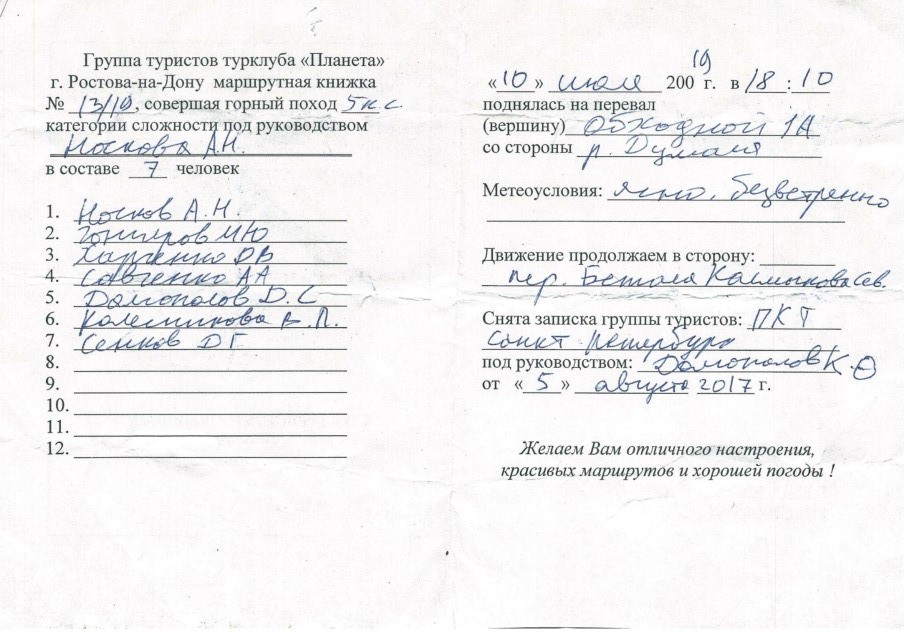 Группа туристов турклуба «Планета»
г. Ростова-на-Дону маршрутная книжка
№ 13/19, совершая горный поход 5 к.с.
категории сложности под руководством
Носкова А.Н.
в составе 7 человек
1. Носков А.Н.
2. М Ю
3. Харченко О В
4. Савченко А А
5. Домополов Д. С
6. Колесникова В. П.
7. Сенков Д Г
8.
9.
10.
11.
12.
«10» июля 2009 г. в 18 : 10
19
поднялась на перевал
(вершину) Обходной 1А
со стороны р. Думала
Метеоусловия: ясно, безветренно
Движение продолжаем в сторону:
пер. Сев.
Снята записка группы туристов: ПКТ
Санкт-Петербург
под руководством: Домополов К.
от «5» августа 2017 г.
Желаем Вам отличного настроения,
красивых маршрутов и хорошей погоды !